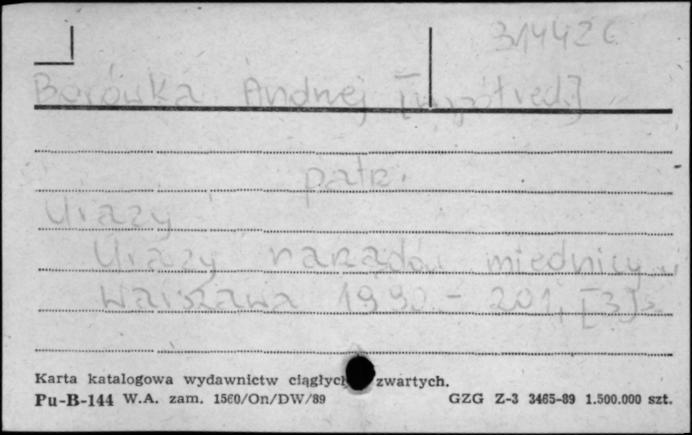 314426
Borówka Andrzej [współred.]
patrz.
Urazy
Urazy narządów miednicy
Warszawa 1990. - 201, [3] s.
Karta katalogowa wydawnictw ciągłych zwartych.
Pu-B-144 W.A. zam. 1560/On/DW/89 GZG Z-3 3465-89 1.500.000 szt.